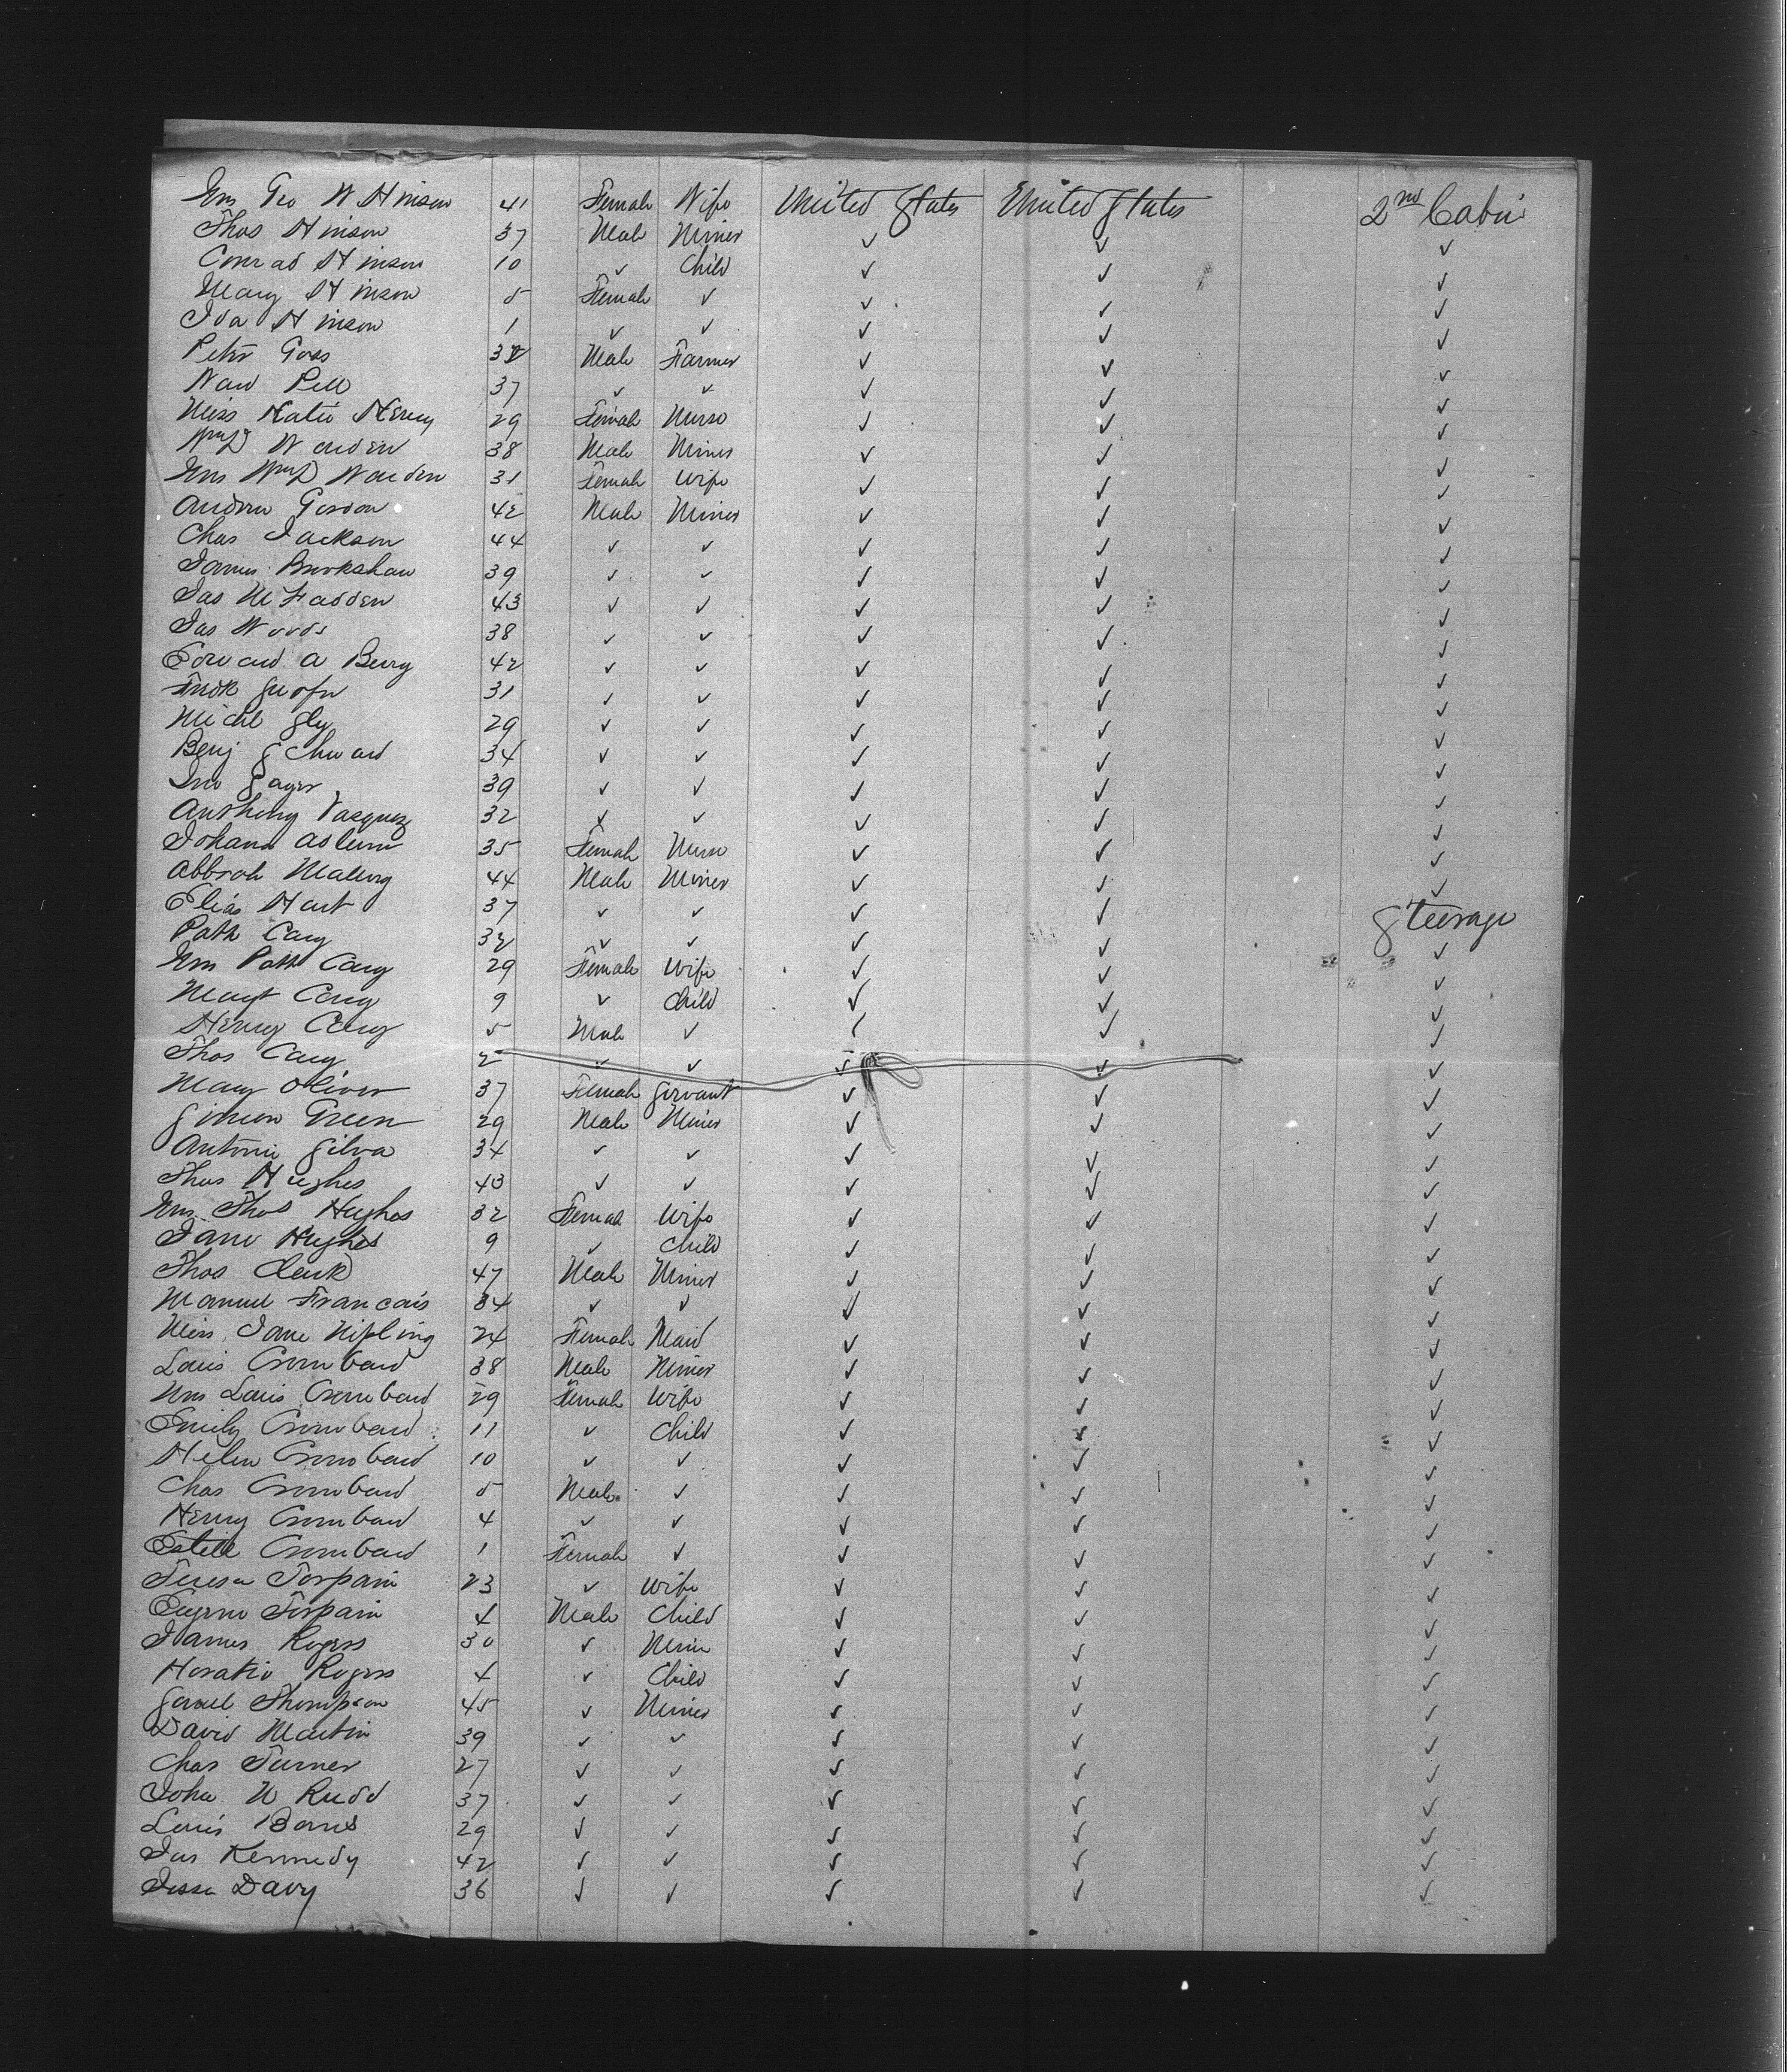 Mrs Geo W Hinson 41 Female Wife United States United States 2nd Cabin
Thos Hinson 37 Male Miner ✓ ✓ ✓
Conrad Hinson 10 ✓ Child ✓ ✓ ✓
Mary Hinson 5 Female ✓ ✓ ✓ ✓
Ida Hinson 1 ✓ ✓ ✓ ✓ ✓
Peter Goss Male Farmer ✓ ✓ ✓
Pell 37 ✓ ✓ ✓ ✓ ✓
Miss Katie Henry 29 Female Nurse ✓ ✓ ✓
Wm D Warden 38 Male Miner ✓ ✓ ✓
Mrs Wm D Warden 31 Female Wife ✓ ✓ ✓
Andrew Gordon 42 Male Miner ✓ ✓ ✓
Chas Jackson 44 ✓ ✓ ✓ ✓ ✓
James Burkshaw 39 ✓ ✓ ✓ ✓ ✓
Jas McFadden 43 ✓ ✓ ✓ ✓ ✓
Jas Woods 38 ✓ ✓ ✓ ✓ ✓
Edward A Berry 42 ✓ ✓ ✓ ✓ ✓
Fredk 31 ✓ ✓ ✓ ✓ ✓
Michl Sly 29 ✓ ✓ ✓ ✓ ✓
Benj Schward 34 ✓ ✓ ✓ ✓ ✓
Jno Sayer 39 ✓ ✓ ✓ ✓ ✓
Anthony Vasquez 32 ✓ ✓ ✓ ✓ ✓
Johana 35 Female Nurse ✓ ✓ ✓
44 Male Miner ✓ ✓ ✓
Elias Hart 37 ✓ ✓ ✓ ✓ Steerage
Patk Cary 32 ✓ ✓ ✓ ✓ ✓
Mrs Patk Cary 29 Female Wife ✓ ✓ ✓
Margt Cary 9 ✓ Child ✓ ✓ ✓
Henry Cary 5 Male ✓ ✓ ✓ ✓
Thos Cary 2 ✓ ✓ ✓ ✓ ✓
Mary Oliver 37 Female Servant ✓ ✓ ✓
Simeon Green 29 Male Miner ✓ ✓ ✓
Antonio Silva 34 ✓ ✓ ✓ ✓ ✓
Thos Hughes 43 ✓ ✓ ✓ ✓ ✓
Mrs Thos Hughes 32 Female Wife ✓ ✓ ✓
Jane Hughes 9 ✓ Child ✓ ✓ ✓
Thos Clark 47 Male Miner ✓ ✓ ✓
Manuel Francais 34 ✓ ✓ ✓ ✓ ✓
Miss Jane Kipling 24 Female Maid ✓ ✓ ✓
Louis Crombard 38 Male Miner ✓ ✓ ✓
Mrs Louis Crombard 29 Female Wife ✓ ✓ ✓
Emily Crombard 11 ✓ Child ✓ ✓ ✓
Helen Crombard 10 ✓ ✓ ✓ ✓ ✓
Chas Crombard 5 Male ✓ ✓ ✓ ✓
Henry Crombard 4 ✓ ✓ ✓ ✓ ✓
Estell Crombard 1 Female ✓ ✓ ✓ ✓
Teresa Torpain 23 ✓ Wife ✓ ✓ ✓
Eugene Torpain 4 Male Child ✓ ✓ ✓
James Rogers 30 ✓ Miner ✓ ✓ ✓
Horatio Rogers 4 ✓ Child ✓ ✓ ✓
Thompson 45 ✓ Miner ✓ ✓ ✓
David Martin 39 ✓ ✓ ✓ ✓ ✓
Chas Turner 27 ✓ ✓ ✓ ✓ ✓
John W Rudd 37 ✓ ✓ ✓ ✓ ✓
Louis Barns 29 ✓ ✓ ✓ ✓ ✓
Jas Kennedy 42 ✓ ✓ ✓ ✓ ✓
Jesse Davy 36 ✓ ✓ ✓ ✓ ✓